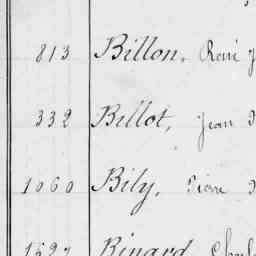 813 Billon, René J
332 Billot, Jean
1060 Bily, Pierre
Binard